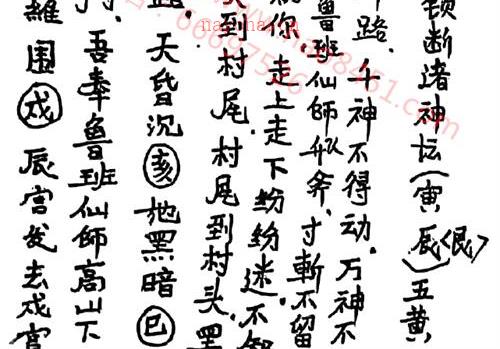 锁断诸神坛(寅辰<艮>)五黄
路.千神不得动.万神不
鲁班仙师 斧.寸斬不留
你.走上走下纷纷迷不
到村尾.村尾到村头.黑
.天昏沉亥地黑暗巳
.吾奉鲁班仙師高山下
羅围戍辰宫发去戍宫
66697526